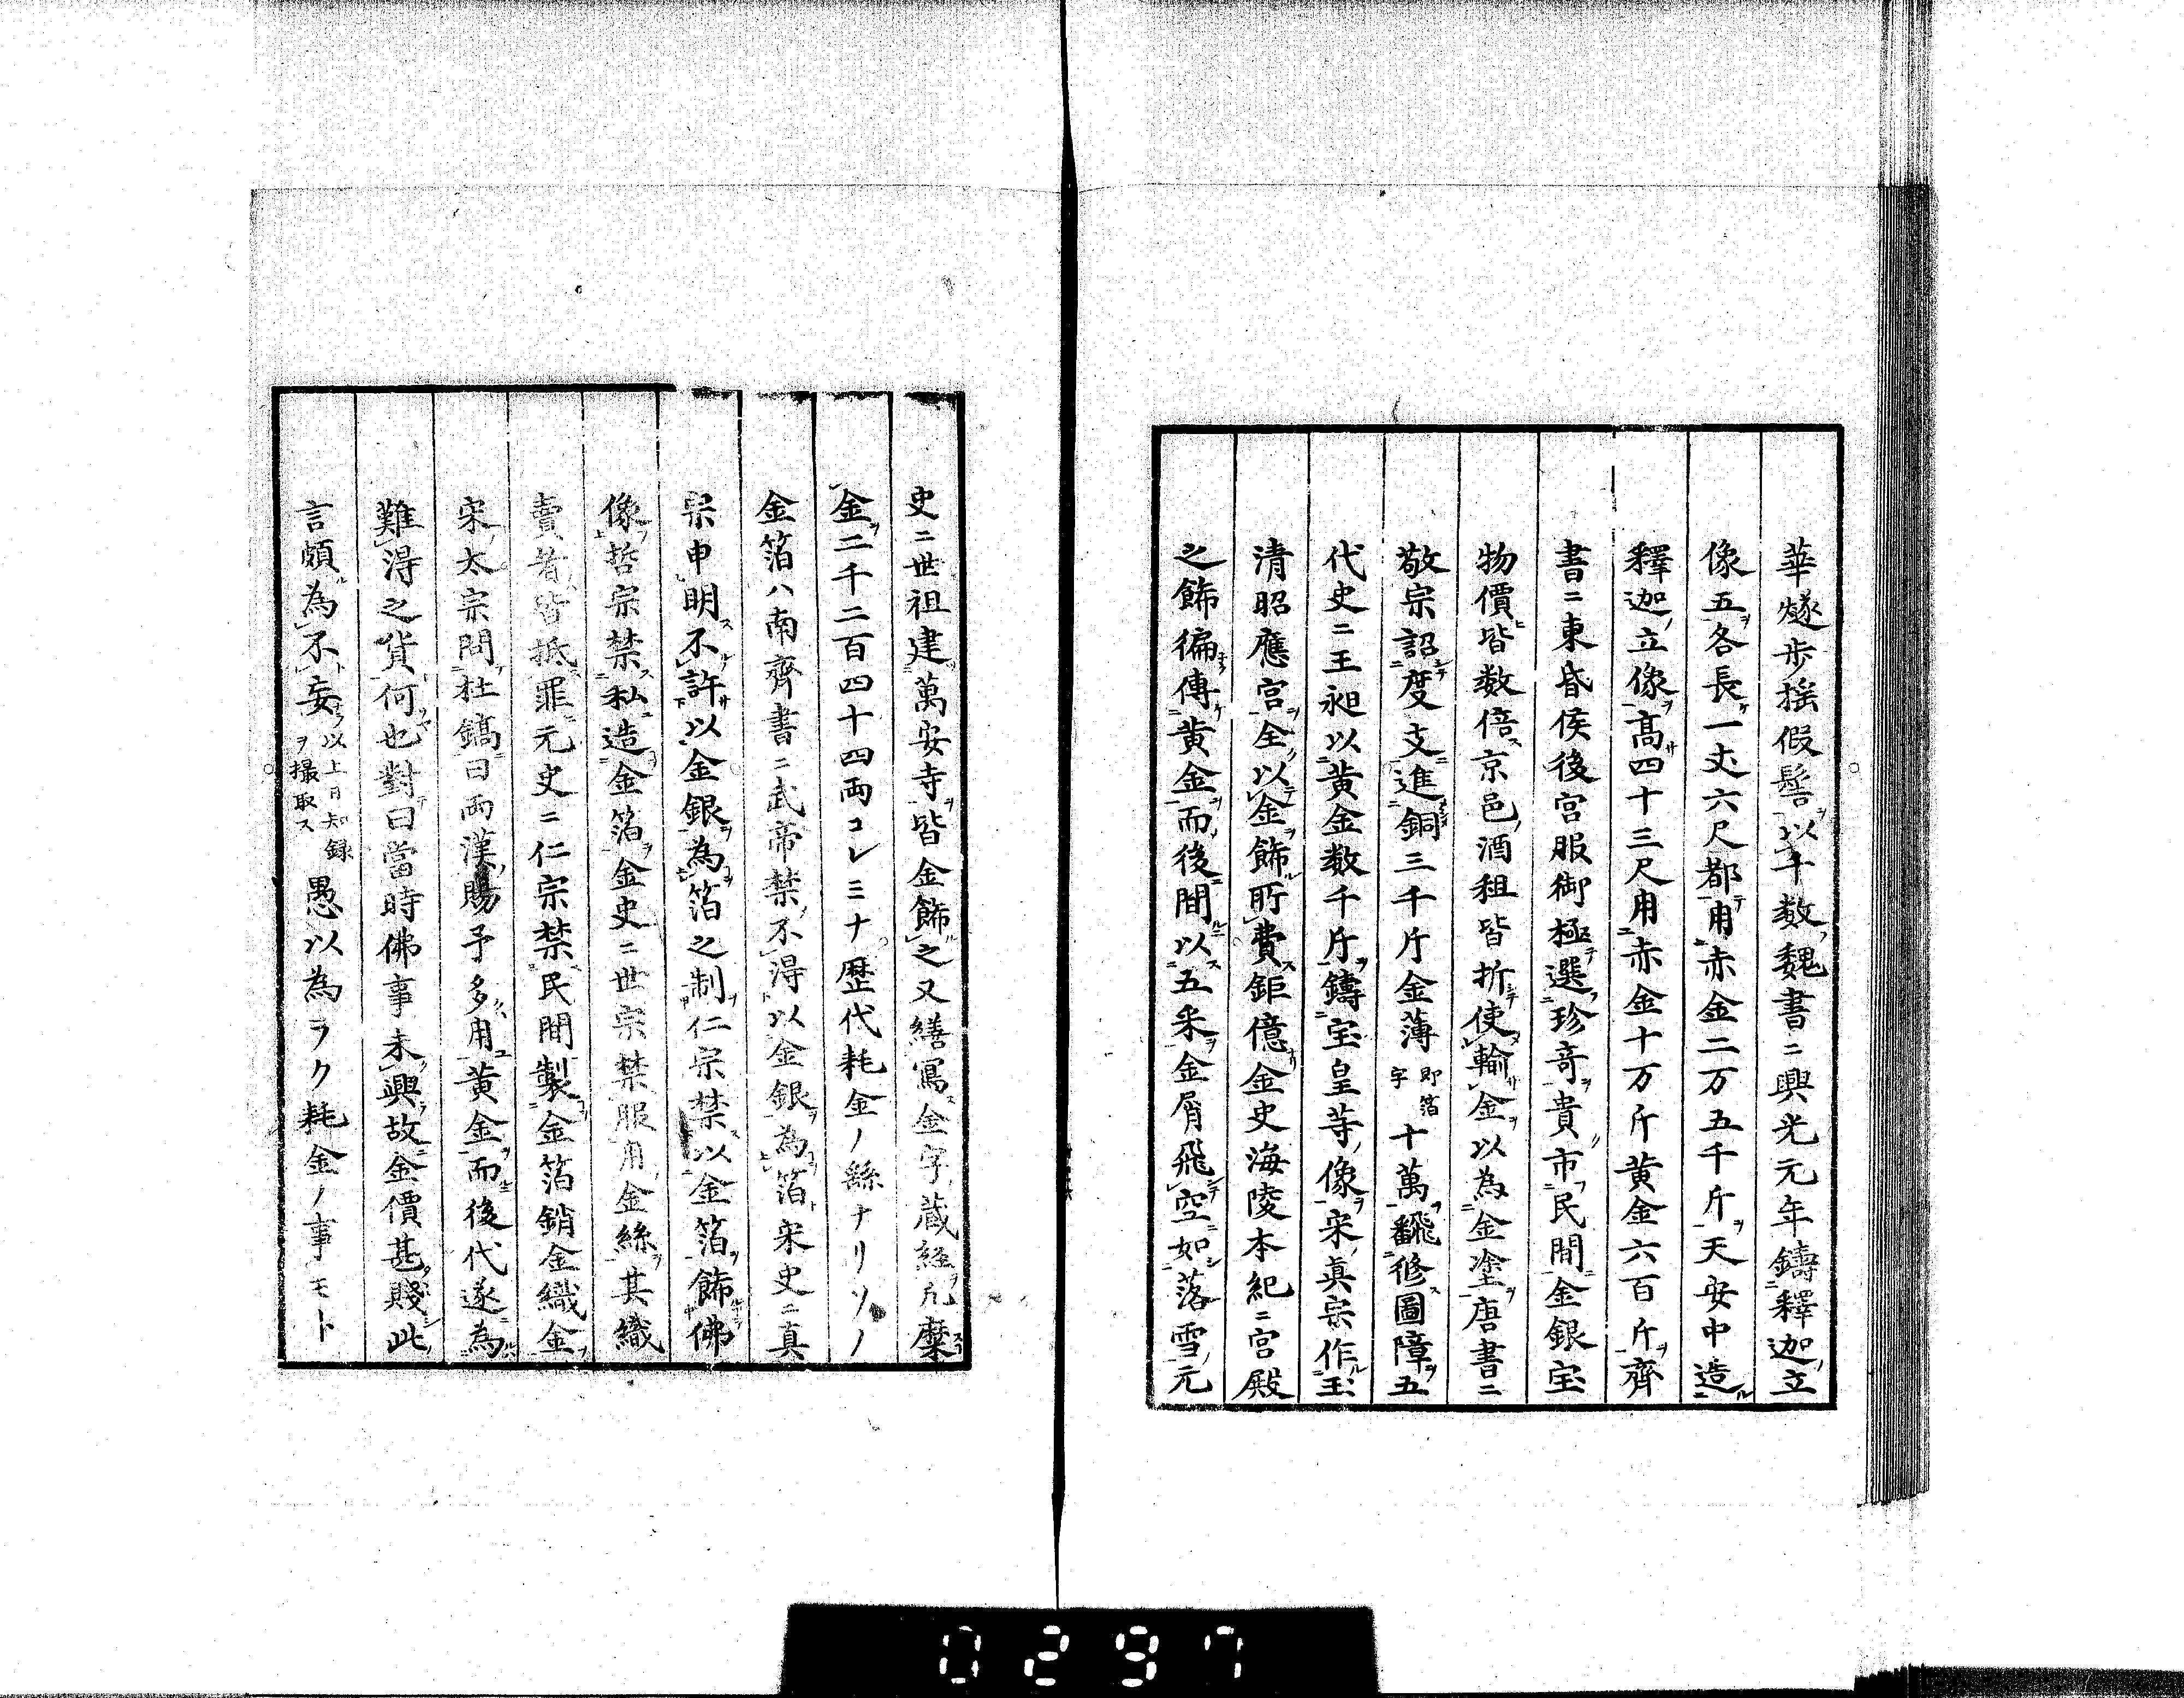 華燧歩揺假髻以千数魏書ニ興光元年鑄釋迦立
像五各長一丈六尺都用赤金二万五千斤天安中造
釋迦立像高四十三尺用赤金十万斤黄金六百斤齊
書ニ東昏侯後宮服御極選珍奇貴市民間金銀宝
物價皆数倍京邑酒租皆折使輸金以為金塗唐書ニ
敬宗詔度支進銅三千斤金薄即箔字十萬飜修圖障五
代史ニ王昶以黄金数千斤鑄宝皇等像宋真宗作玉
清昭應宮全以金飾所費鉅億金史海陵本紀ニ宮殿
之飾徧傅黄金而後間以五釆金屑飛空如落雪元
史ニ世祖建萬安寺皆金飾之又繕寫金字蔵経凢糜
金二千二百四十四両コレミナ歴代耗金ノ繇ナリソノ
金箔ハ南齊書ニ武帝禁不得以金銀為箔宋史ニ真
宗申明不許以金銀為箔之制仁宗禁以金箔飾佛
像哲宗禁私造金箔金史ニ世宗禁服用金絲其織
賣者皆抵罪元史ニ仁宗禁民間製金箔銷金織金
宋太宗問杜鎬曰両漢賜予多用黄金而後代遂為
難得之貨何也對曰當時佛事未興故金價甚賤此
言頗為不妄以上日知録ヲ撮取ス愚以為ラク耗金ノ事モト
0297